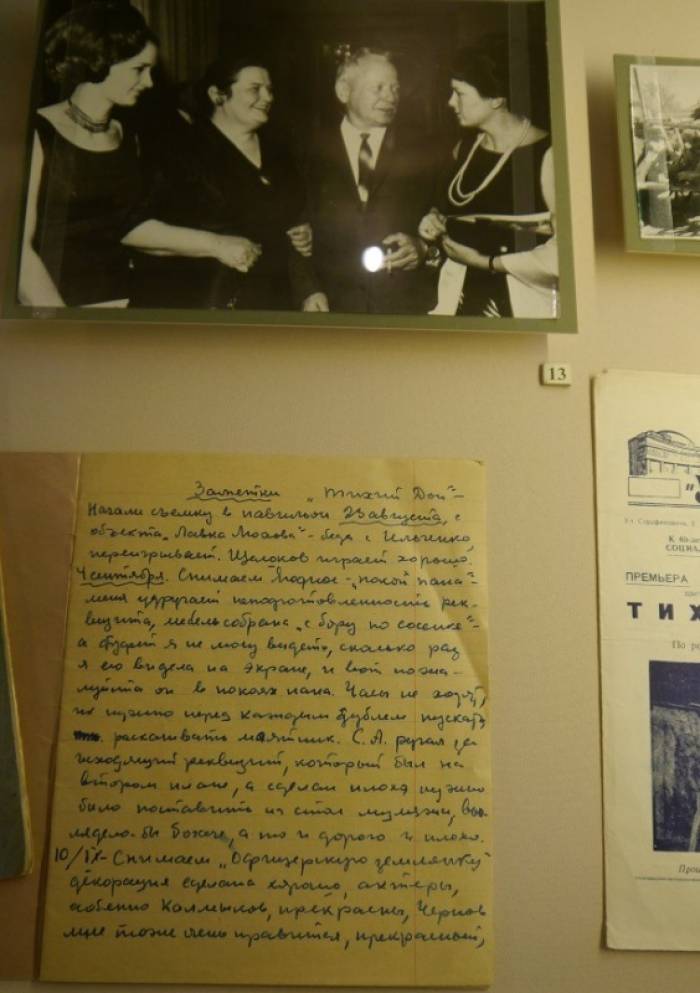 13
Заметки „Тихий Дон“-
Начали съемку в павильоне 23 августа, с
объекта „Лавка Мохова“- беда с Ильченко,
переигрывает. Щелоков играет хорошо.
4 сентября. Снимаем Ягодное - „покои пана“-
меня удручает неподготовленность рек-
визита, мебель собрана „с бору по сосенке“-
а буфет я не могу видеть, сколько раз
я его видела на экране, и вот пожа-
луйста он в покоях пана. Часы не ходят,
их нужно перед каждым дублем пускать,
раскачивать маятник. С. А. ругал за
исходящий реквизит, который был на
втором плане, а сделан плохо нужно
было поставить на стол муляжи, выг-
лядело бы богаче, а то и дорого и плохо.
10/IX- Снимаем „Офицерскую землянку“
декорация сделана хорошо, актеры,
особенно Калмыков, прекрасны, Чернов
мне тоже очень нравится, прекрасный,
Ул. Серафимовича, 2
К 40-лет
СОЦИА
ПРЕМЬЕРА
ТИХ
По ро